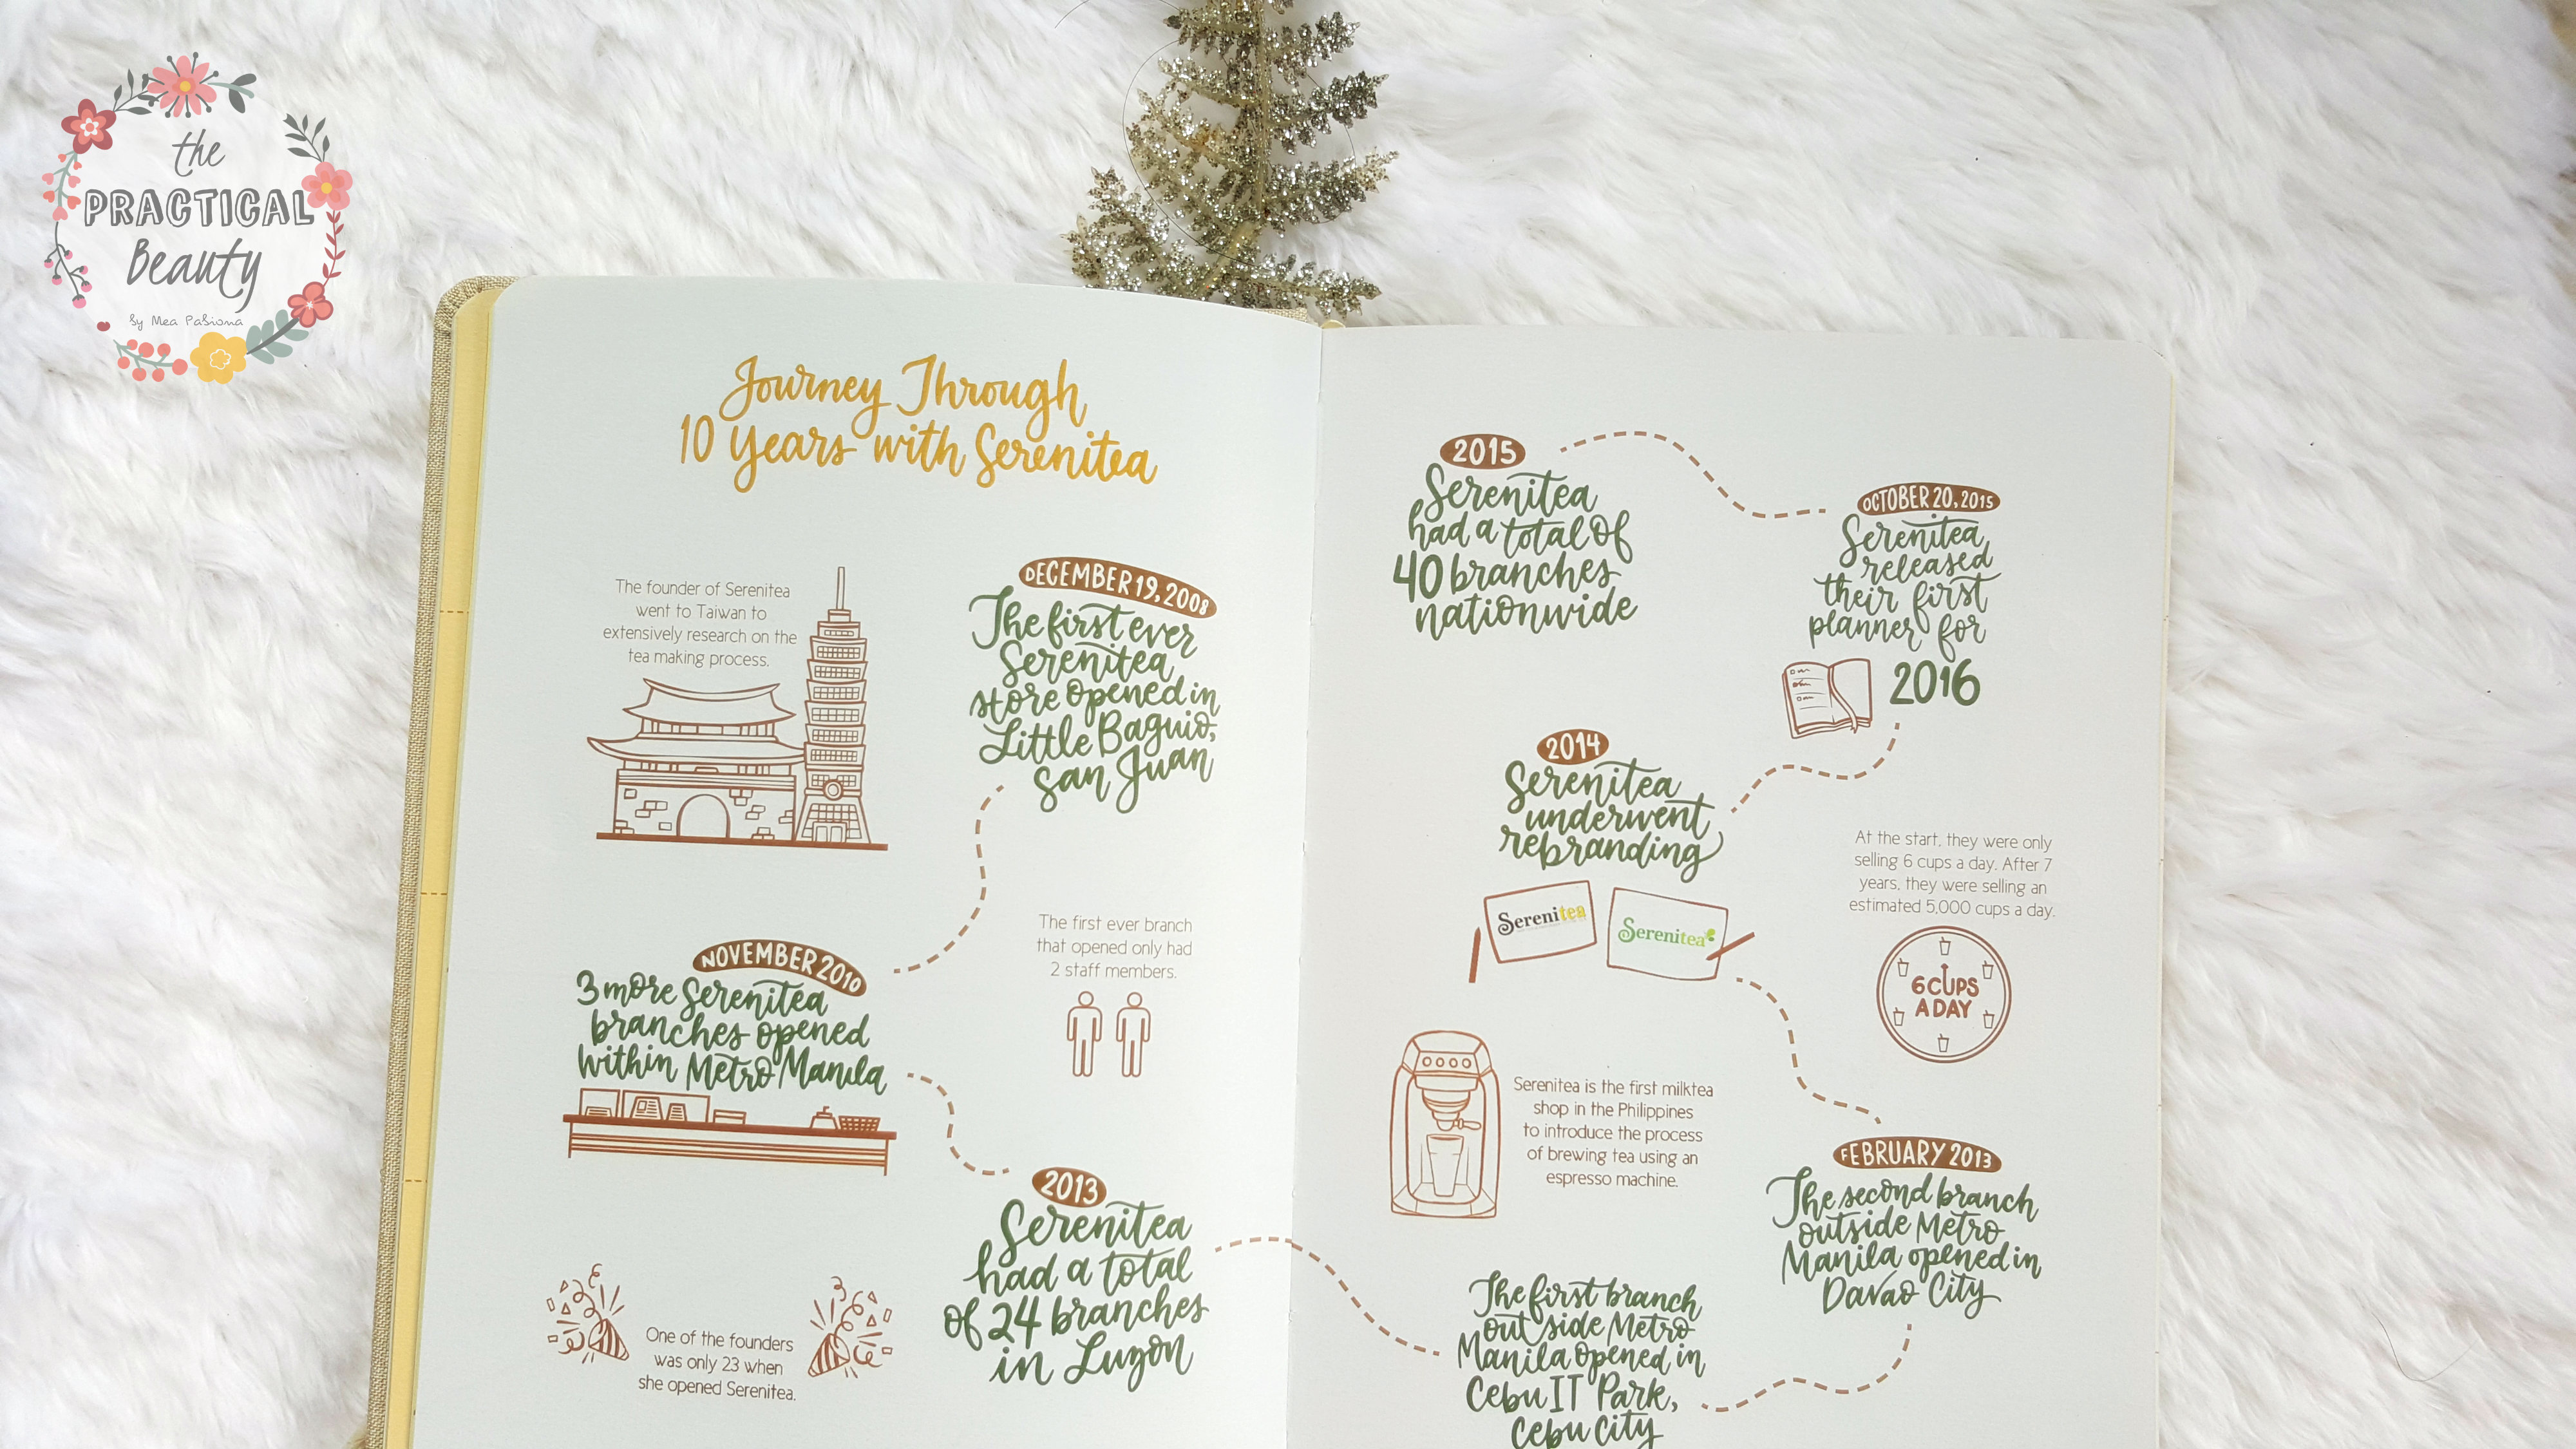 the
PRACTICAL
Beauty
by Mea Pabiona
Journey Through
10 Years with Serenitea
The founder of Serenitea
went to Taiwan to
extensively research on the
tea making process.
DECEMBER 19, 2008
The first ever
Serenitea
store opened in
Little Baguio,
San Juan
NOVEMBER 2010
3 more Serenitea
branches opened
within Metro Manila
The first ever branch
that opened only had
2 staff members.
2013
Serenitea
had a total
of 24 branches
in Luzon
One of the founders
was only 23 when
she opened Serenitea.
2015
Serenitea
had a total of
40 branches
nationwide
OCTOBER 20, 2015
Serenitea
released
their first
planner for
2016
2014
Serenitea
underwent
rebranding
Serenitea
Serenitea
At the start, they were only
selling 6 cups a day. After 7
years, they were selling an
estimated 5,000 cups a day.
6 CUPS
A DAY
Serenitea is the first milktea
shop in the Philippines
to introduce the process
of brewing tea using an
espresso machine.
FEBRUARY 2013
The second branch
outside Metro
Manila opened in
Davao City
The first branch
outside Metro
Manila opened in
Cebu IT Park,
Cebu City